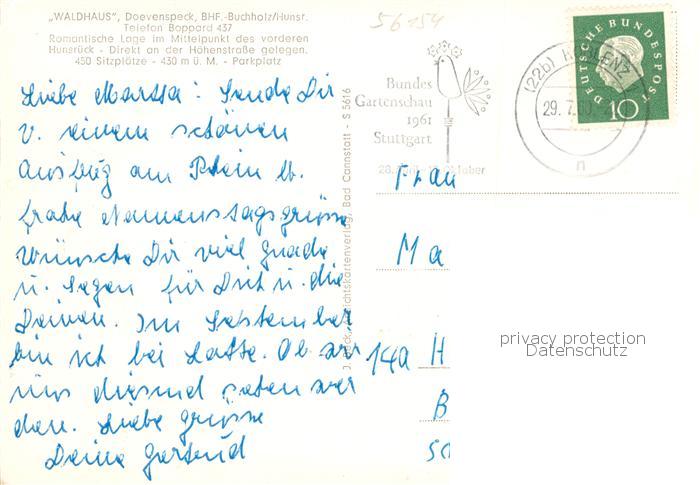 „WALDHAUS", Doevenspeck, BHF.-Buchholz/Hunsr.
Telefon Boppard 437
Romantische Lage im Mittelpunkt des vorderen
Hunsrück - Direkt an der Höhenstraße gelegen.
450 Sitzplätze - 430 m ü. M. - Parkplatz
56154
Liebe Martha! Sende Dir
v. einem schönen
Ausflug am Rhein
frohe Namenstagsgrüsse
Wünsche Dir viel Gnade
u. Segen für Dich u. die
Deinen. Im September
bin ich bei Lotte. Ob wir
uns diesmal sehen wer
den. Liebe grüsse
Deine Gertrud
Ansichtskartenverlag, Bad Cannstatt - S 5616
Bundes
Gartenschau
1961
Stuttgart
(22b) KOBLENZ
29.7.60
n
DEUTSCHE BUNDESPOST
10
Frau
Ma
14a H
B
privacy protection
Datenschutz